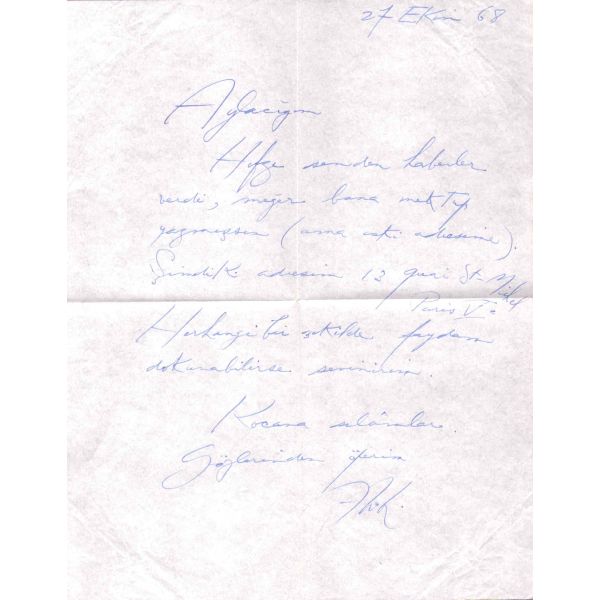 27 Ekim 68
Aylacığım
Hıfzı senden haberler
verdi, meğer bana mektup
yazmışsın (ama eski adresime).
Şimdiki adresim 13 quai St-Michel
Paris Ve
Herhangi bir şekilde faydam
dokunabilirse sevinirim.
Kocana selâmlar.
Gözlerinden öperim